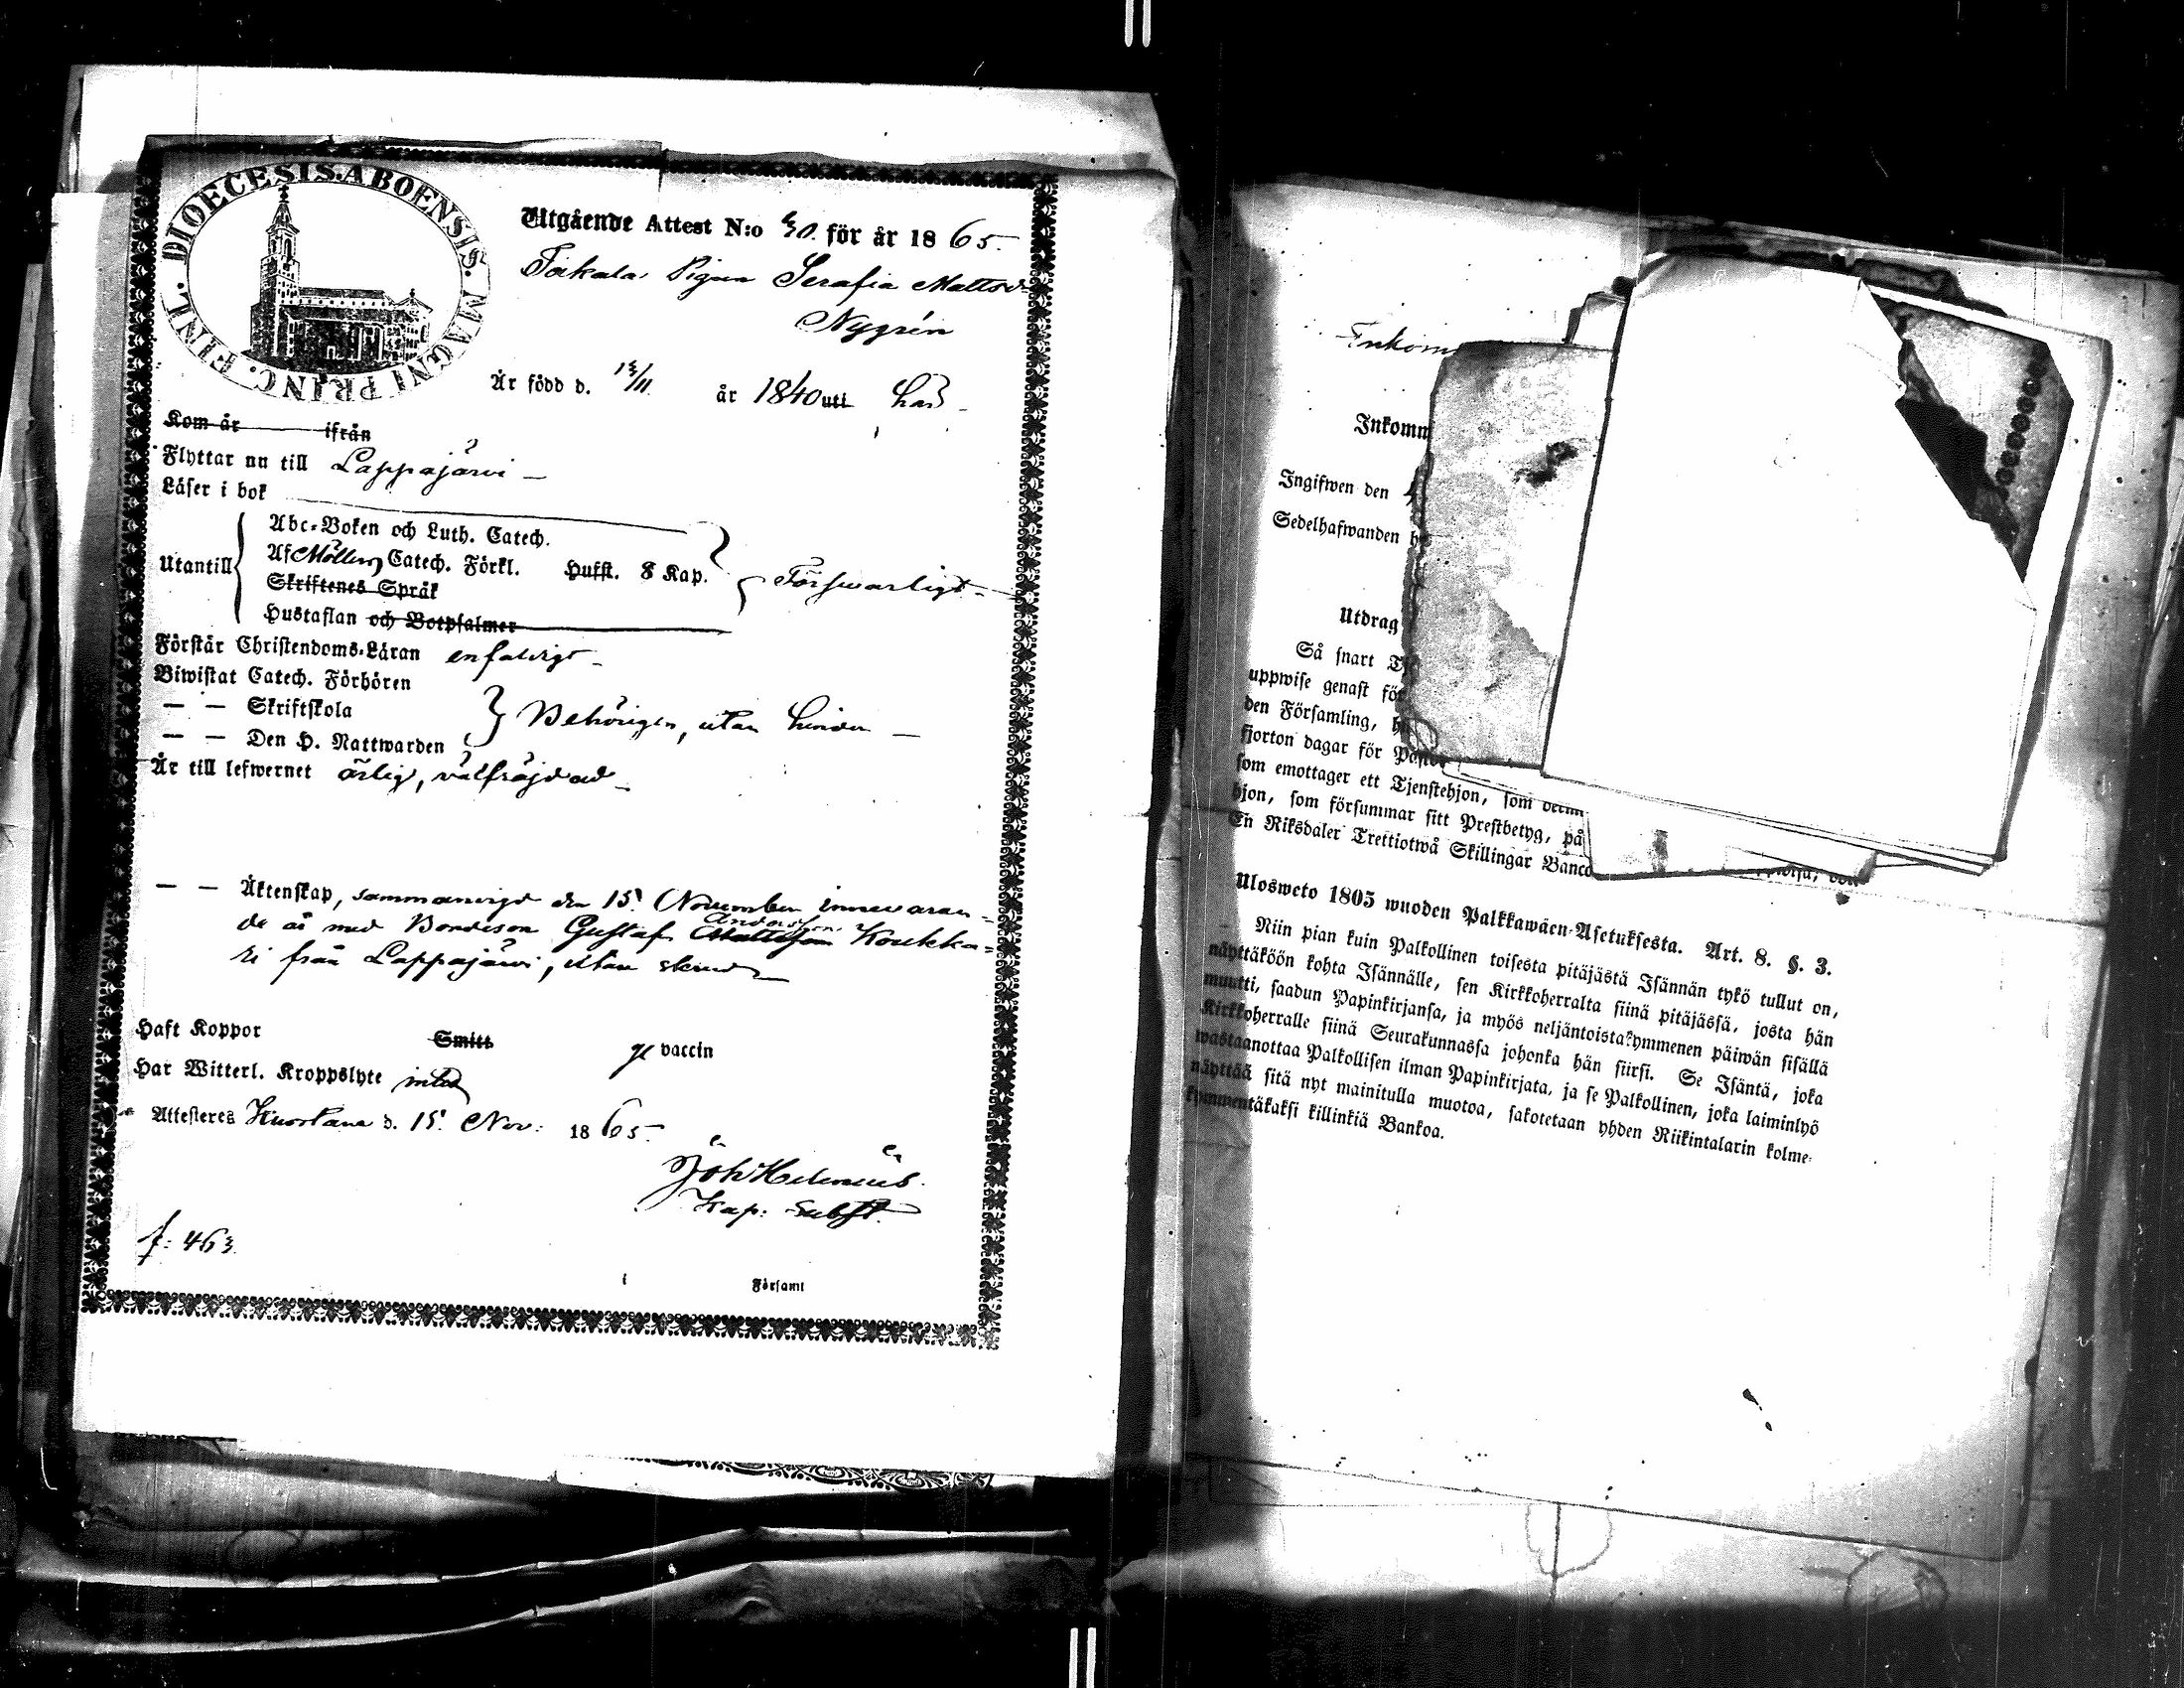 DIOECESIS. ABOENSIS. MAGNI PRINC. FINL.
Utgående Attest N:o 30. för år 1865.
Pigan Serafia Mattsd:
Nygrén
Är född d. 13/11 år 1840 uti här
Kom år ifrån
Flyttar nu till Lappajärvi
Läser i bok
Utantill
Abc-Boken och Luth. Catech.
Af Möllers Catech. Förkl. Husst. 8 Kap.
Skriftenes Språk
Hustaflan och Botpsalmer
Förswarligt
Förstår Christendoms-Läran enfaldigt
Biwistat Catech. Förhören
— — Skriftskola
— — Den H. Nattwarden
Behörigen, utan hinder
Är till lefwernet ärlig, välfräjdad
— — Äktenskap, sammanvigd den 15 November innevaran-
de år med Bondeson Gustaf Mattsson Andersson Koukka-
ri från Lappajärvi, utan skuld
Haft Koppor Smitt vaccin
Har Witterl. Kroppslyte intet
Attesteres Kuortane d. 15 Nov: 1865.
Joh Helenius
Kap: Subst.
f: 463.
i Församl
Inkom
Inkomm
Ingifwen den
Sedelhafwanden
Utdrag
Så snart
uppwise genast för
den Församling, h
fjorton dagar för Pastor
som emottager ett Tjenstehjon, som
hjon, som försummar sitt Prestbetyg, på
En Riksdaler Trettiotwå Skillingar Banco
Ulosweto 1805 wuoden Palkkawäen-Asetuksesta. Art. 8. §. 3.
Niin pian kuin Palkollinen toisesta pitäjästä Isännän tykö tullut on,
näyttäköön kohta Isännälle, sen Kirkkoherralta siinä pitäjässä, josta hän
muutti, saadun Papinkirjansa, ja myös neljäntoistakymmenen päiwän sisällä
Kirkkoherralle siinä Seurakunnassa johonka hän siirsi. Se Isäntä, joka
wastaanottaa Palkollisen ilman Papinkirjata, ja se Palkollinen, joka laiminlyö
näyttää sitä nyt mainitulla muotoa, sakotetaan yhden Riikintalarin kolme-
kymmentäkaksi killinkiä Bankoa.